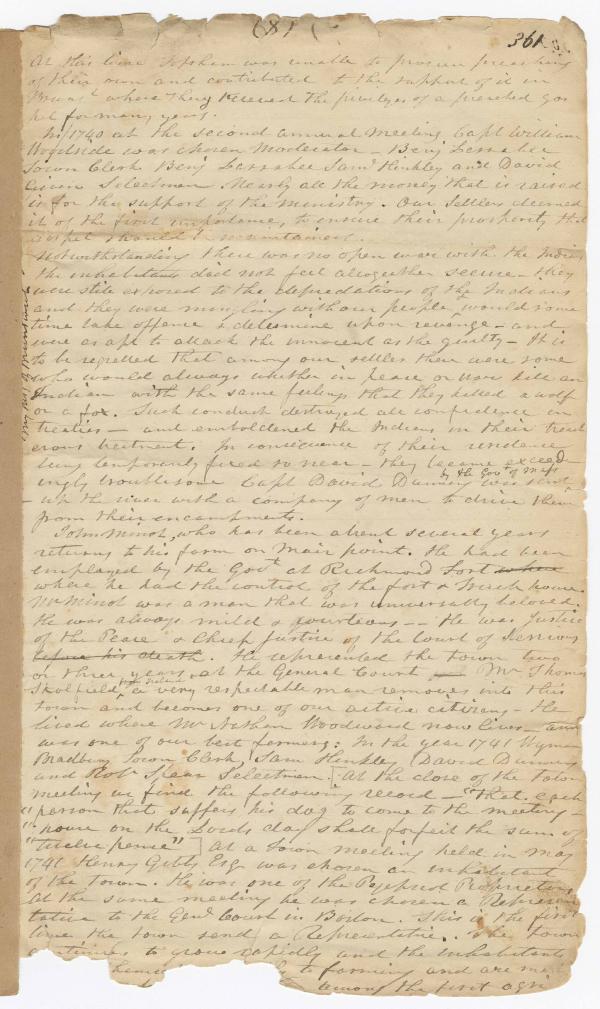 (8)
361
At this time Topsham was unable to procure preaching
of their own and contributed to the support of it in
Brunsk where they received the privileges of a preached gos
pel for many years.
In 1740 at the second annual Meeting Capt William
Woodside was chosen Moderator - Benj Larrabee
Town Clerk Benj Larrabee Saml Hinkley and David
Selectmen. Nearly all the money that is raised
is for the support of the ministry. Our Settlers deemed
it of the first importance, to ensure their prosperity that
gospel should be maintained.
Notwithstanding there was no open war with the Indians
the inhabitants did not feel altogether secure - they
were still exposed to the depredations of the Indians
and they were mingling with our people would some
time take offence & determine upon revenge - and
were as apt to attack the innocent as the guilty - It is
to be regretted that among our settlers there were some
who would always whether in peace or war kill an
Indian with the same feelings that they killed a wolf
or a fox. Such conduct destroyed all confidence in
treaties - and emboldened the Indians in their treach
erous treatment. In consequence of their residence
being temporarily fixed so near - they became exceed
ingly troublesome Capt David Dunning was sent by the Govt of Mass
- up the river with a company of men to drive them
from their encampments.
John Minot, who has been absent several years
returns to his farm on Mair point. He had been
employed by the Govt at Richmond Fort where
where he had the control of the fort & Truck house.
Mr Minot was a man that was universally beloved.
He was always mild & courteous -- He was Justice
of the Peace & Chief Justice of the Court of Sessions
before his death. He represented the town two
or three years at the General Court Mr Thomas
Skolfield from Ireland a very respectable man removes into this
town and becomes one of our active citizens - He
lived where Mr Nathan Woodward now lives - and
was one of our best farmers: In the year 1741 Wyman
Bradbury Town Clerk, Sam Hinkley David Dunning
and Robt Spear Selectmen [At the close of the Town
meeting we find the following record - "That each
"person that suffers his dog to come to the meeting -
"house on the Lords day shall forfeit the sum of
"twelve pence"] At a Town meeting held in may
1741 Henry Gibbs Esq was chosen an inhabitant
of the Town. He was one of the Pejepscot Proprietors
At the same meeting he was chosen a Represen
tative to the Genl Court in Boston. This is the first
time the town send a Representative. The town
continues to grow rapidly and the inhabitants
to farming and are
among the first agri